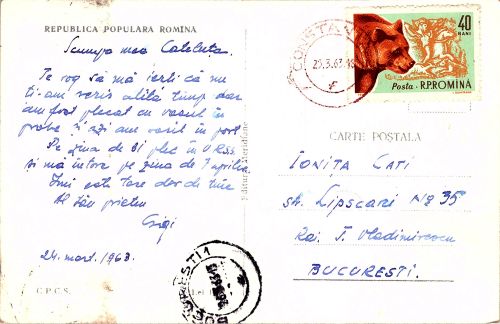 REPUBLICA POPULARA ROMÎNA
Scumpa mea Cateluța,
Te rog să mă ierti că nu
ti-am scris atîta timp dar
am fost plecat cu vasul în
probe și azi am sosit în port
Pe ziua de 31 plec în URSS
și mă întorc pe ziua de 7 aprilie
Îmi este tare dor de tine
Al tău prieten
Gigi
24. mart. 1963.
C.P.C.S.
Editura Meridiane
Lei
BUCUREȘTI 1
CONSTANȚA
25.3.63
40
BANI
Posta R.P.ROMINA
CARTE POȘTALA
IONIȚA CATI
str. Lipscari Nº 35
Rai. T. Vladimirescu
BUCURESTI.